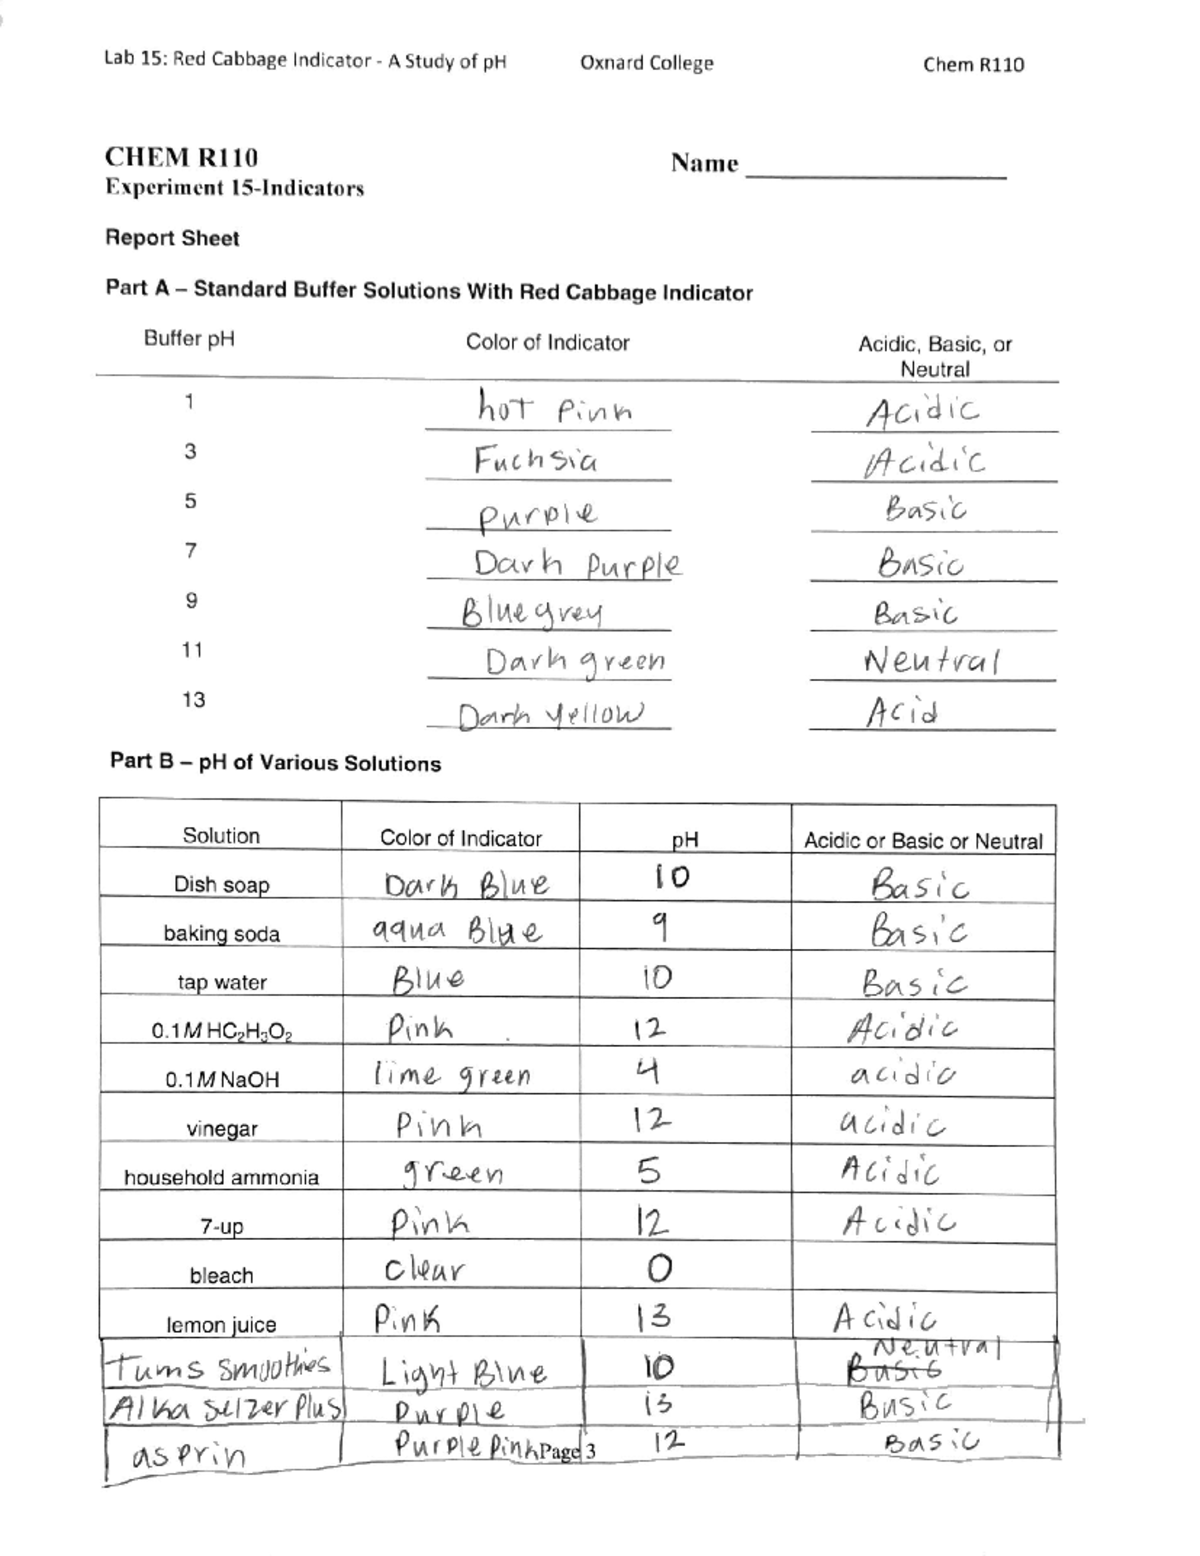 Lab 15: Red Cabbage Indicator - A Study of pH Oxnard College Chem R110
CHEM R110 Name
Experiment 15-Indicators
Report Sheet
Part A – Standard Buffer Solutions With Red Cabbage Indicator
Buffer pH Color of Indicator Acidic, Basic, or
Neutral
1 hot Pink Acidic
3 Fuchsia Acidic
5 purple Basic
7 Dark purple Basic
9 Bluegrey Basic
11 Dark green Neutral
13 Dark yellow Acid
Part B – pH of Various Solutions
Solution Color of Indicator pH Acidic or Basic or Neutral
Dish soap Dark Blue 10 Basic
baking soda aqua Blue 9 Basic
tap water Blue 10 Basic
0.1M HC₂H₃O₂ Pink 12 Acidic
0.1M NaOH lime green 4 acidic
vinegar Pink 12 acidic
household ammonia green 5 Acidic
7-up Pink 12 Acidic
bleach clear 0
lemon juice Pink 13 Acidic
Neutral
Tums smoothies Light Blue 10 Basic
Alka selzer Plus Purple 13 Basic
asprin Purple Pink Page 3 12 Basic